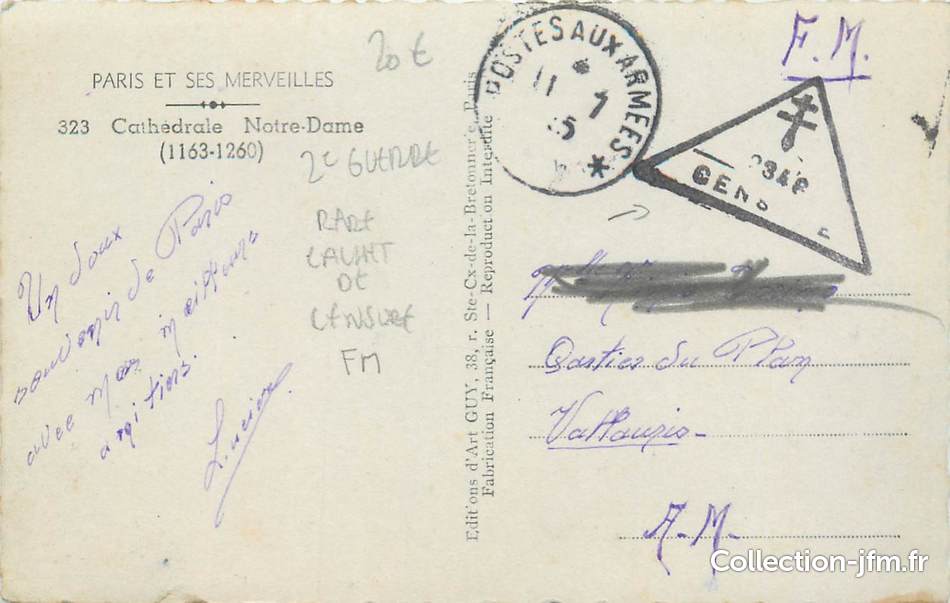 PARIS ET SES MERVEILLES
323 Cathédrale Notre-Dame
(1163-1260)
Un doux
souvenir de Paris
avec mes meilleurs
Lucien
20 €
2e GUERRE
RARE
CACHET
DE
CENSURE
FM
Editions d'Art GUY, 38, r. Ste-Cx-de-la-Bretonnerie, Paris
Fabrication Française — Reproduction Interdite
POSTES AUX ARMEES
11 * 7
*
F.M.
CENS
Qartier du Plan
Vallauris-
A-M-
Collection-jfm.fr